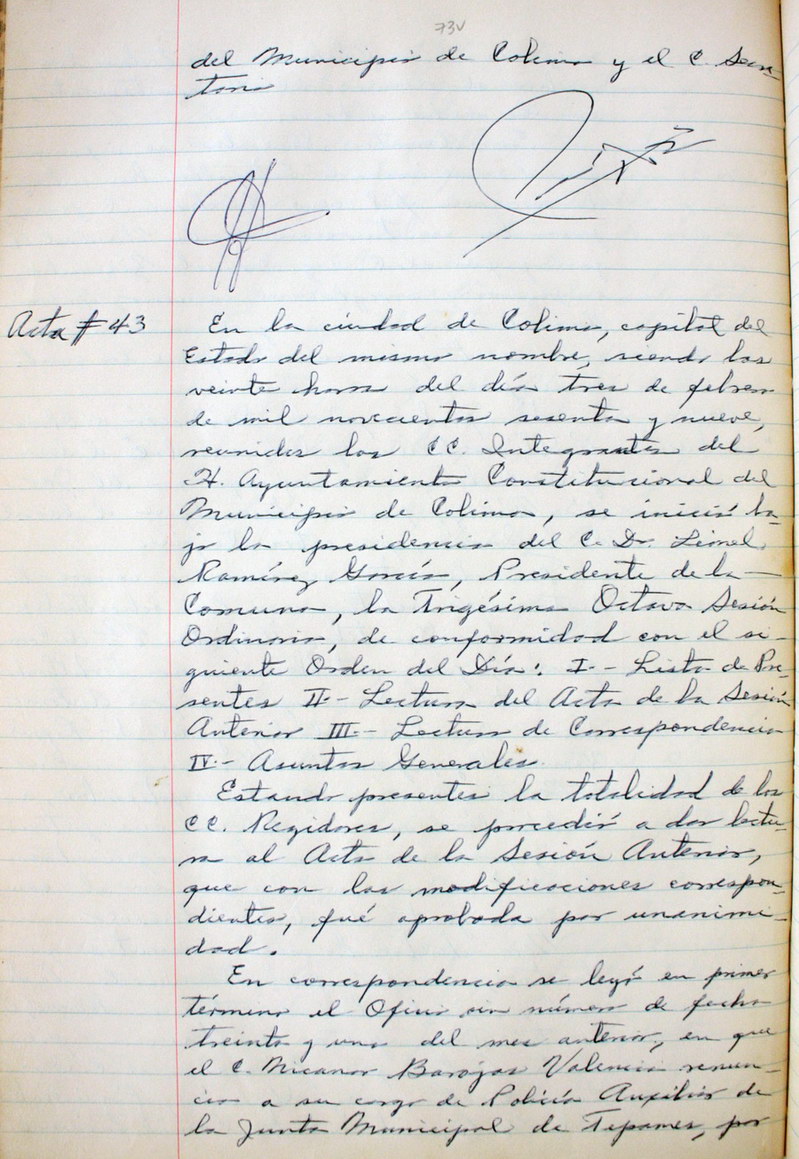 73v
del Municipio de Colima y el C. Secre-
tario
Acta # 43
En la ciudad de Colima, capital del
Estado del mismo nombre, siendo las
veinte horas del día tres de febrero
de mil novecientos sesenta y nueve,
reunidos los CC. Integrantes del
H. Ayuntamiento Constitucional del
Municipio de Colima, se inició ba-
jo la presidencia del C. Dr. Lionel
Ramírez García, Presidente de la
Comuna, la Trigésima Octava Sesión
Ordinaria, de conformidad con el si-
guiente Orden del Día: I.- Lista de Pre-
sentes II.- Lectura del Acta de la Sesión
Anterior III.- Lectura de Correspondencia
IV.- Asuntos Generales.
Estando presentes la totalidad de los
CC. Regidores, se procedió a dar lectu-
ra al Acta de la Sesión Anterior,
que con las modificaciones correspon-
dientes, fué aprobada por unanimi-
dad.
En correspondencia se leyó en primer
término el Oficio sin número de fecha
treinta y uno del mes anterior, en que
el C. Nicanor Barajas Valencia renun-
cia a su cargo de Policía Auxiliar de
la Junta Municipal de Tepames, por